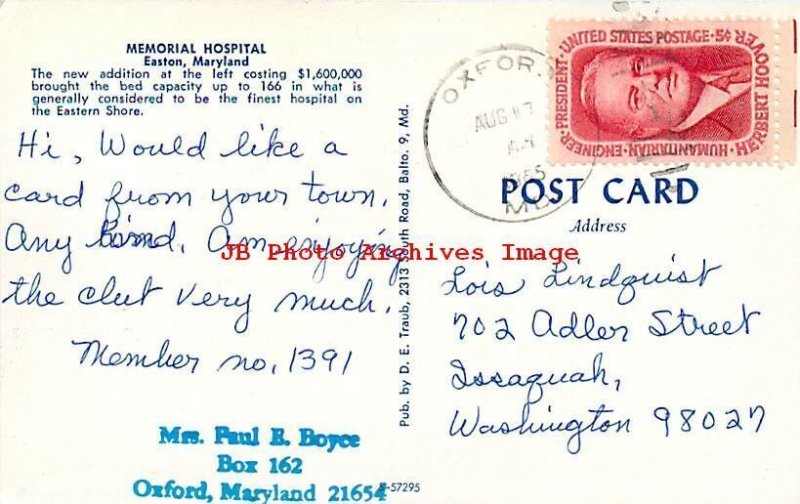 MEMORIAL HOSPITAL
Easton, Maryland
The new addition at the left costing $1,600,000
brought the bed capacity up to 166 in what is
generally considered to be the finest hospital on
the Eastern Shore.
Hi, Would like a
card from your town.
Any kind. Am enjoying
the club very much.
Member no. 1391
Mrs. Paul E. Boyce
Box 162
Oxford, Maryland 21654
Pub. by D. E. Traub, 2313 South Road, Balto. 9, Md.
-57295
JB Photo Archives Image
OXFOR
AUG 17
1965
MD
PRESIDENT·UNITED STATES POSTAGE·5¢
ENGINEER·HUMANITARIAN·HERBERT HOOVER
POST CARD
Address
Lois Lindquist
702 Adler Street
Issaquah,
Washington 98027